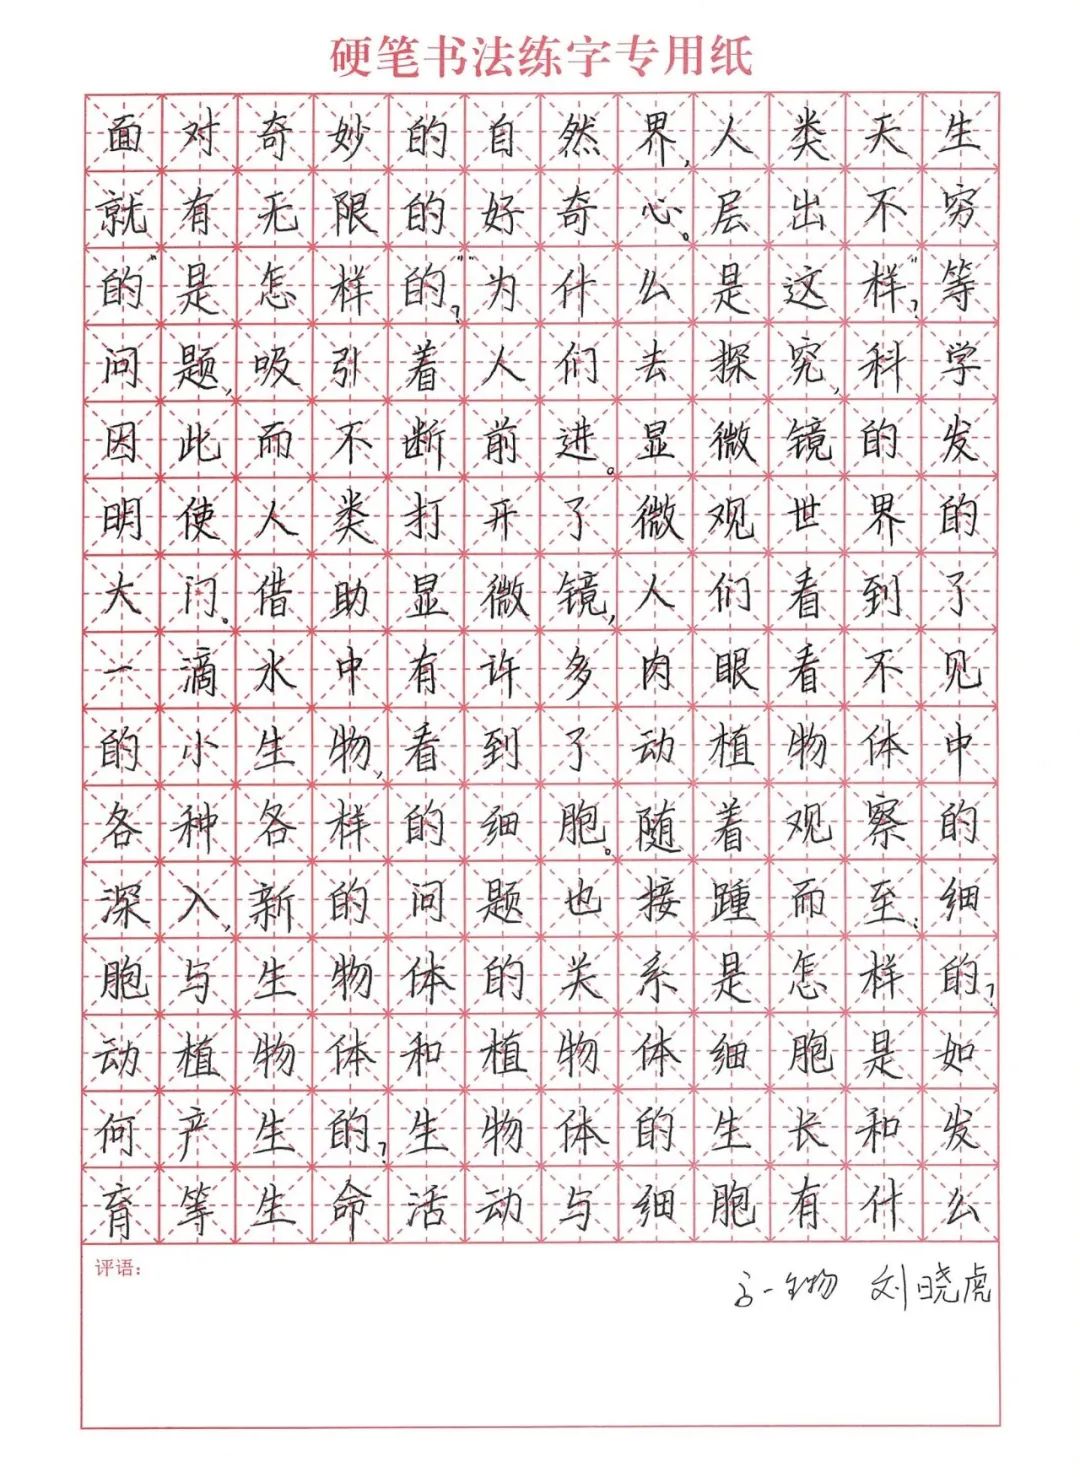 硬笔书法练字专用纸
面对奇妙的自然界,人类天生
就有无限的好奇心。层出不穷
的“是怎样的?”“为什么是这样?”等
问题,吸引着人们去探究,科学
因此而不断前进。显微镜的发
明使人类打开了微观世界的
大门。借助显微镜,人们看到了
一滴水中有许多肉眼看不见
的小生物,看到了动植物体中
各种各样的细胞。随着观察的
深入,新的问题也接踵而至:细
胞与生物体的关系是怎样的?
动植物体和植物体细胞是如
何产生的?生物体的生长和发
育等生命活动与细胞有什么
评语:
高一生物 刘晓虎